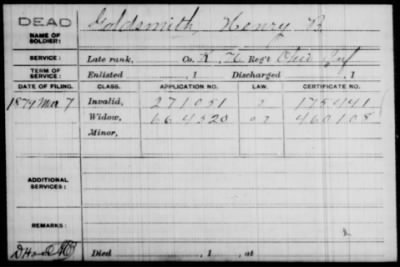 DEAD
NAME OF SOLDIER: Goldsmith, Henry B.
SERVICE: Late rank, Co. K, Reg't Ohio Inf
TERM OF SERVICE: Enlisted , 1 Discharged , 1
DATE OF FILING. CLASS. APPLICATION NO. LAW. CERTIFICATE NO.
1879 Mar 7 Invalid, 271051 175441
Widow, 664520 460108
Minor,
ADDITIONAL SERVICES:
REMARKS:
Died , 1 , at